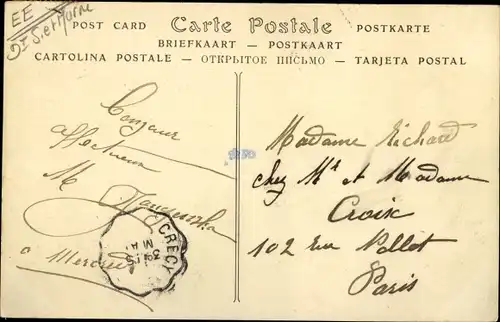 EE
St Set Marne
POST CARD
Carte Postale
POSTKARTE
BRIEFKAART — POSTKAART
CARTOLINA POSTALE — ОТКРЫТОЕ ПИСЬМО — TARJETA POSTAL
Bonjour
affectueux
M
à Mercredi
CRÉCY
Madame Richard
chez Mr et Madame
Croix
102 rue Pellot
Paris